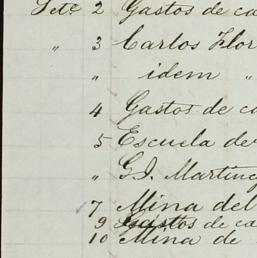 Sete 2 Gastos de ca
" 3 Carlos Flor
" idem "
4 Gastos de c
5 Escuela de
" G. J. Martine
7 Mina del
9 Gastos de ca
10 Mina de